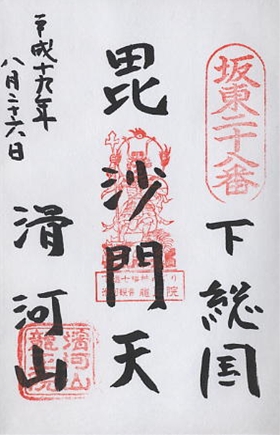 坂東二十八番
下総国
毘沙門天
滑河山
平成十九年
八月二十六日
滑河山
龍正院